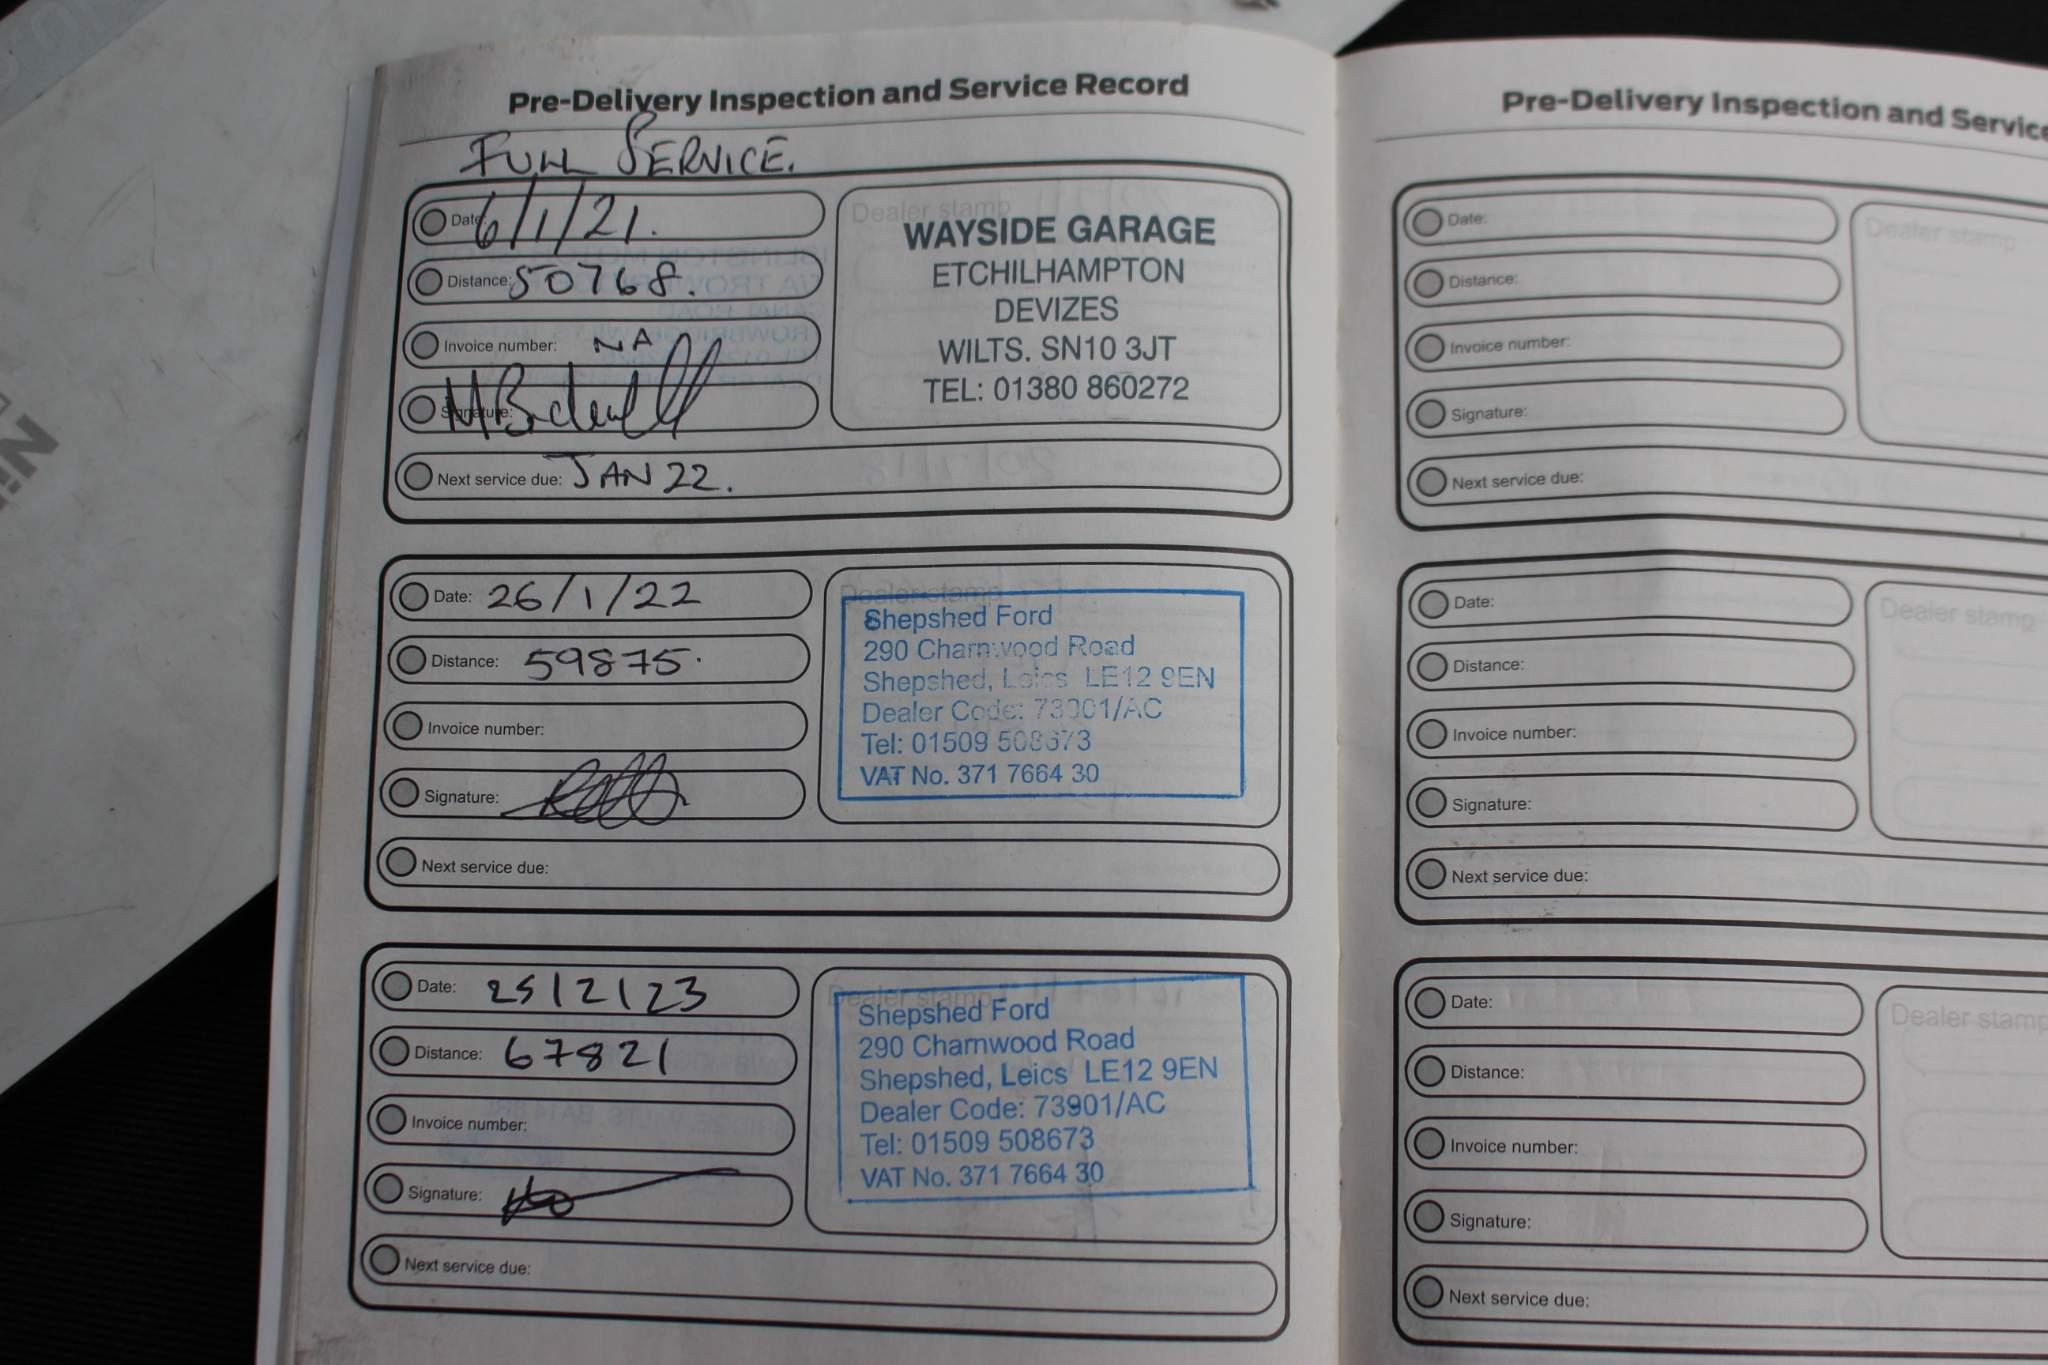 Pre-Delivery Inspection and Service Record
FULL SERVICE.
Date: 6/1/21.
Distance: 50768.
Invoice number: NA
Signature:
Next service due: JAN 22.
Dealer stamp
WAYSIDE GARAGE
ETCHILHAMPTON
DEVIZES
WILTS. SN10 3JT
TEL: 01380 860272
Date: 26/1/22
Distance: 59875.
Invoice number:
Signature:
Next service due:
Dealer stamp
Shepshed Ford
290 Charnwood Road
Shepshed, Leics LE12 9EN
Dealer Code: 73901/AC
Tel: 01509 508673
VAT No. 371 7664 30
Date: 25/2/23
Distance: 67821
Invoice number:
Signature:
Next service due:
Dealer stamp
Shepshed Ford
290 Charnwood Road
Shepshed, Leics LE12 9EN
Dealer Code: 73901/AC
Tel: 01509 508673
VAT No. 371 7664 30
Pre-Delivery Inspection and Service
Date:
Distance:
Invoice number:
Signature:
Next service due:
Dealer stamp
Date:
Distance:
Invoice number:
Signature:
Next service due:
Dealer stamp
Date:
Distance:
Invoice number:
Signature:
Next service due:
Dealer stamp